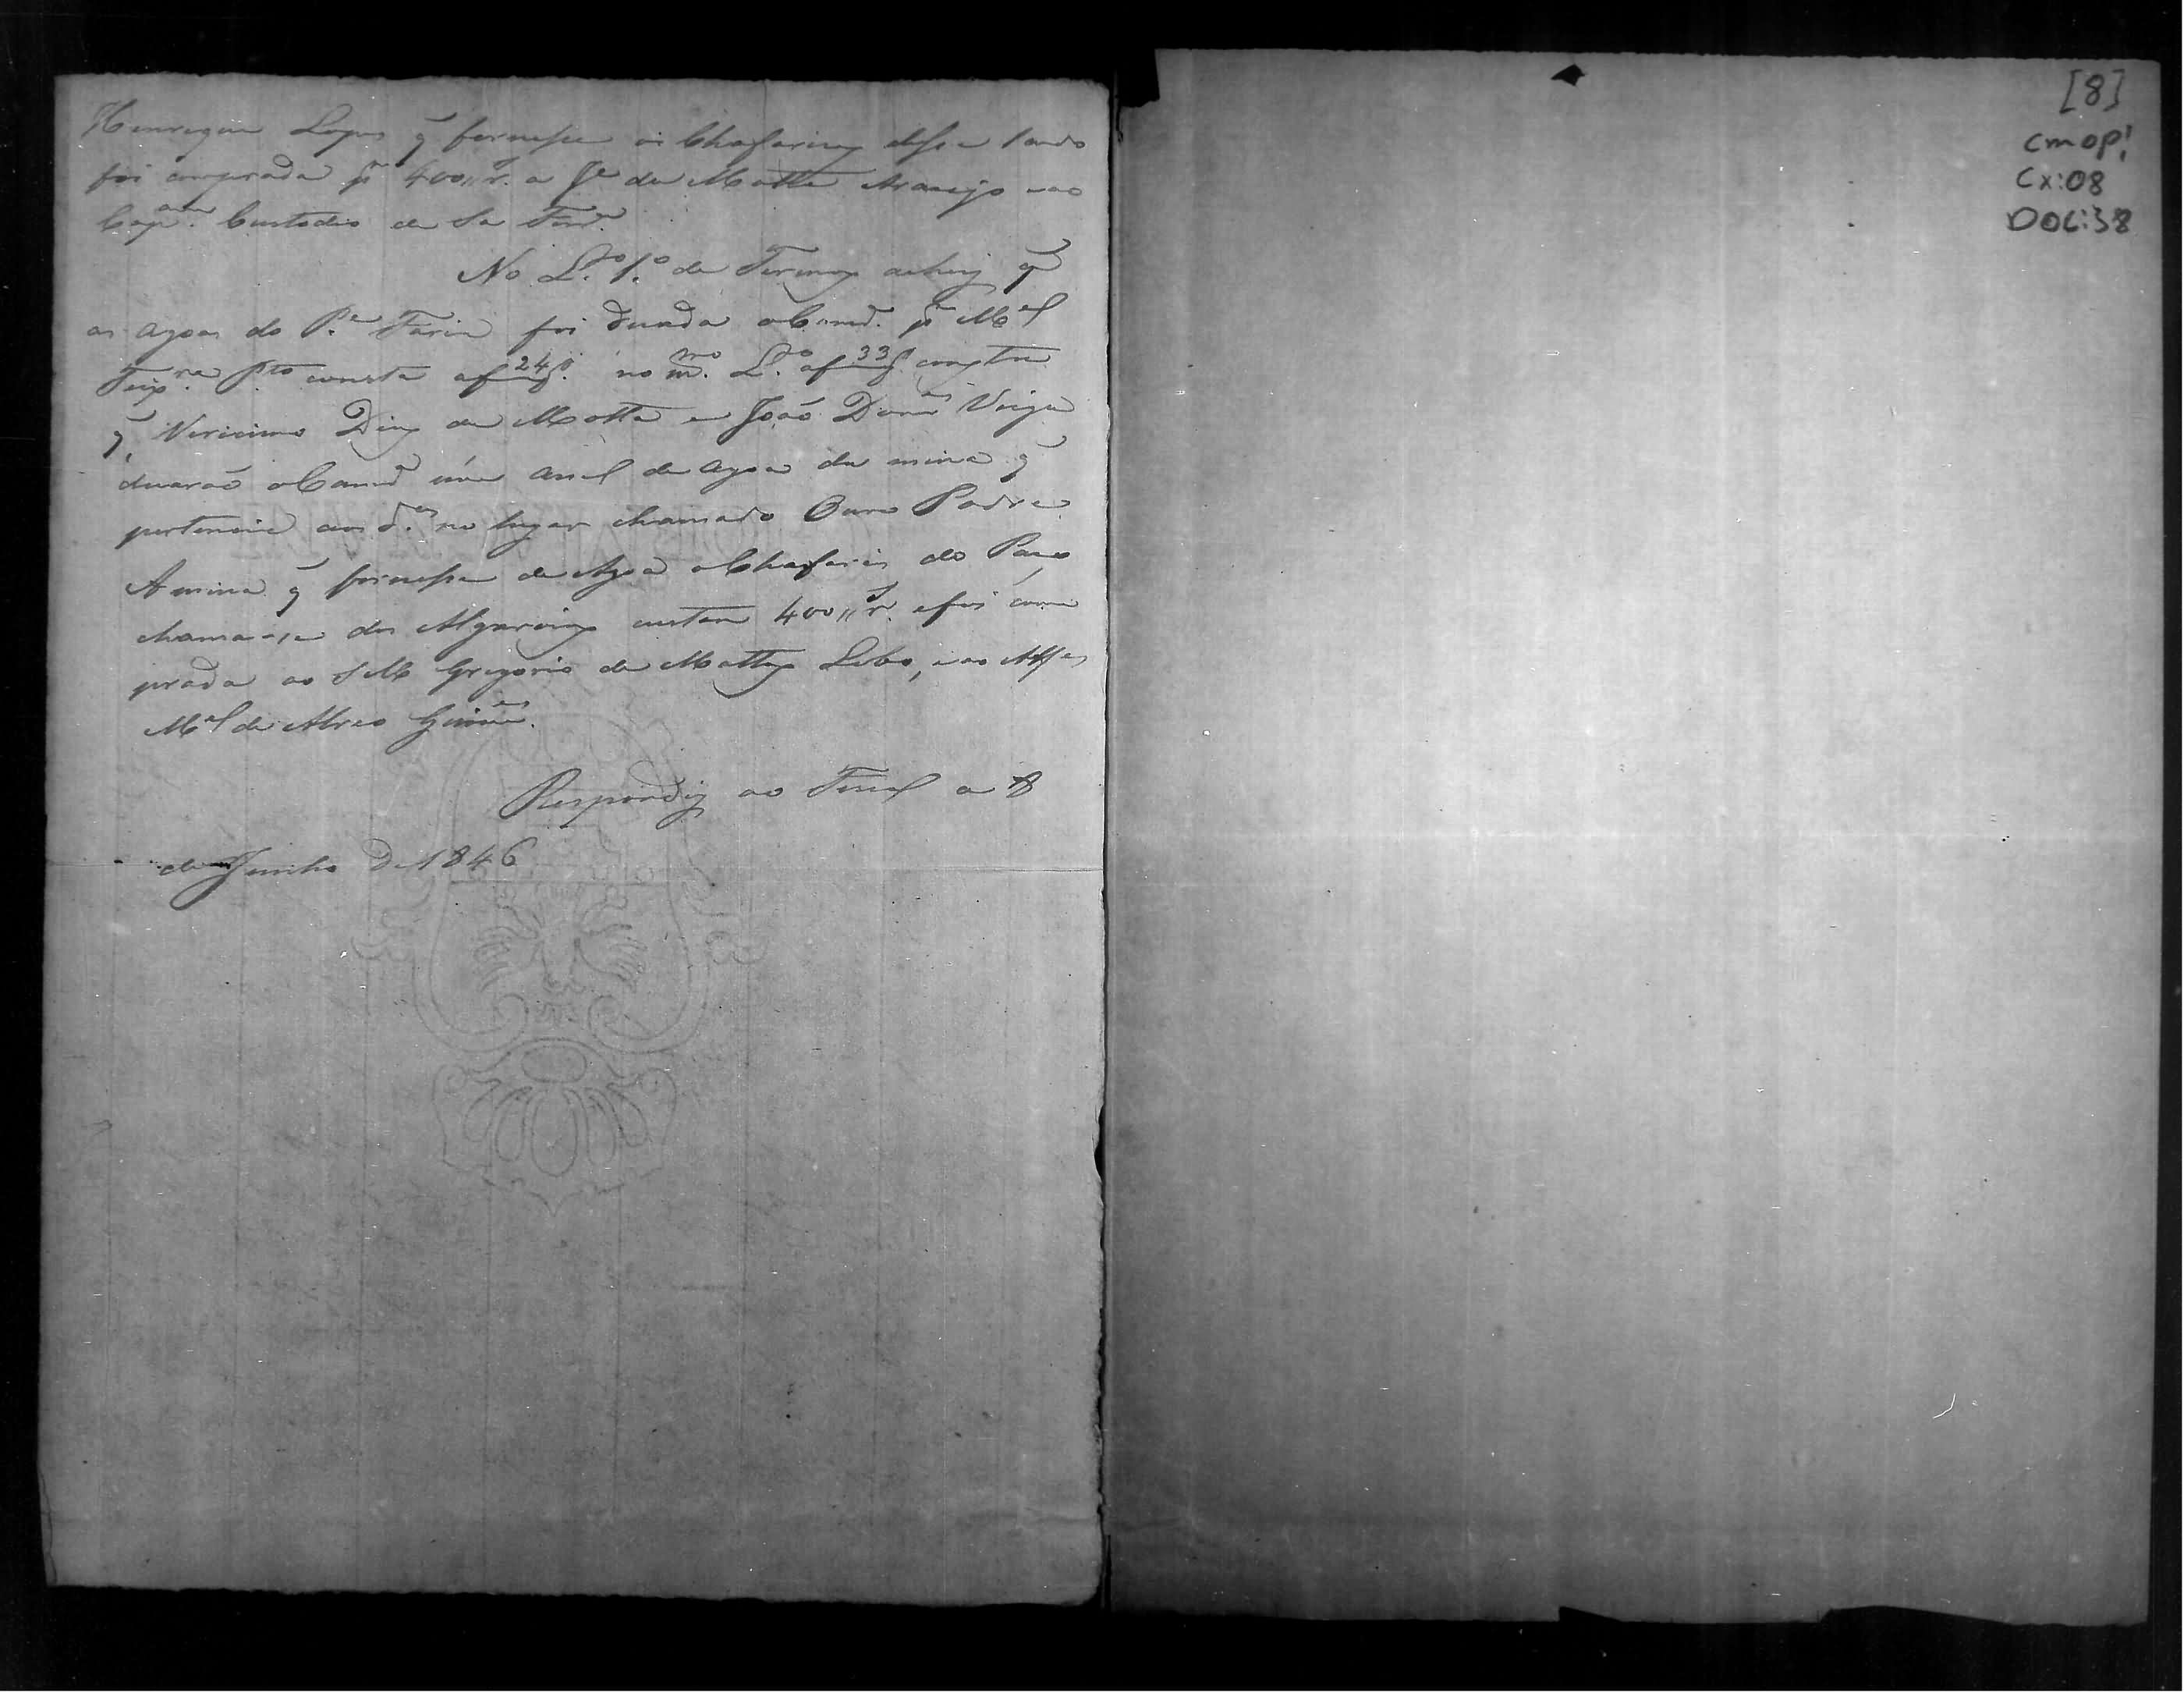 Henrique Lopes q̃ fornesse os Chafarizes desse lado
foi comprada pʳ 400„r.ˢ a Jᵉ da Motta Araujo e ao
Cap.ᵃᵐ Custodio de Sa Ferrˢ.
No L.ʳᵒ 1.º de Termos achei q̃
as agoas do P.ᵉ Faria foi doada a Camr.ᵃ pʳ Mᵉˡ
Teixʳ.ᵃ Pᵗᵒ consta a f 24 no mᵐᵒ. L.ʳᵒ a f 33 consta
q̃ Verissimo Diaz da Motta e João Veiga
doarão a Camrᵃ um anel de agoa da mina q̃
pertencia aos d.ᵒˢ no lugar chamado Ouro Podre
A mina q̃ fornesse de Agoa o Chafaris do Passo
chama-se dos Algarvios custou 400„r.ˢ e foi com
prada ao S M Gregorio de Mattos Lobo, e ao Alfˢ
Mᵉˡ de Abreo Guimᵉˢ.
Respondiz ao Fiscal a 8
de Junho de 1846
[8]
CMOP!
CX:08
DOC:38